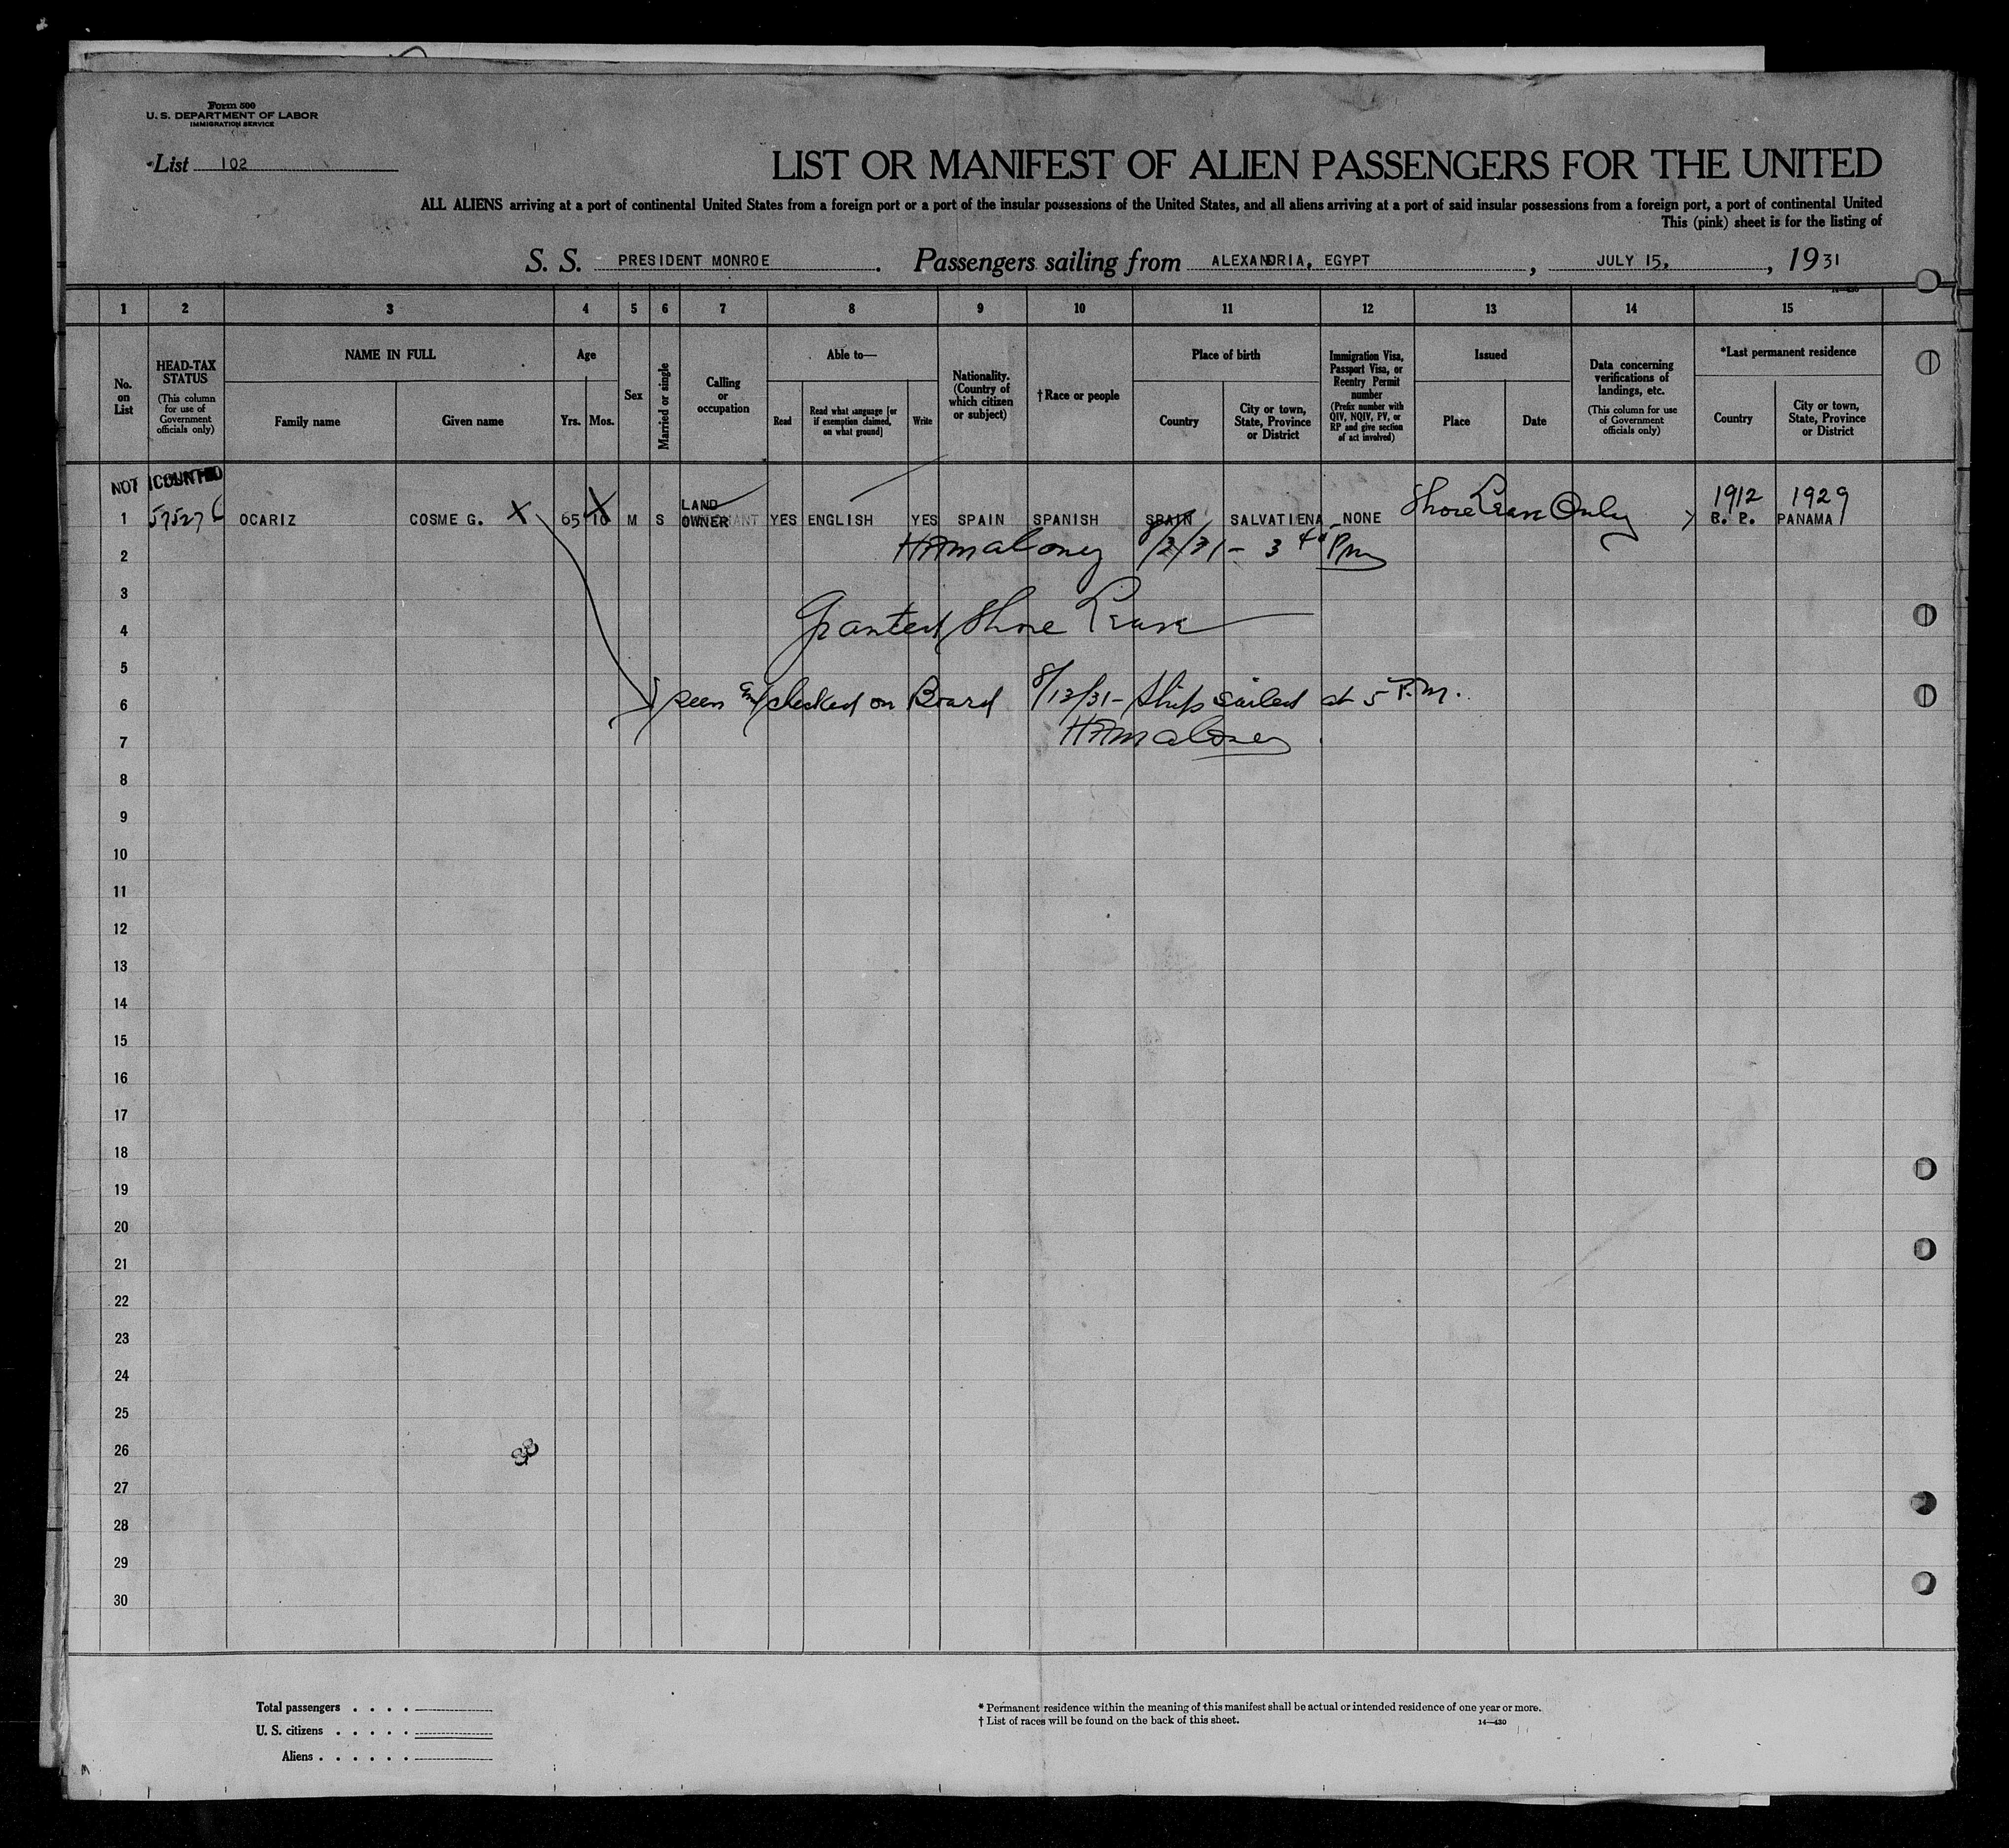 Form 500
U. S. DEPARTMENT OF LABOR
IMMIGRATION SERVICE
List 102
LIST OR MANIFEST OF ALIEN PASSENGERS FOR THE UNITED
ALL ALIENS arriving at a port of continental United States from a foreign port or a port of the insular possessions of the United States, and all aliens arriving at a port of said insular possessions from a foreign port, a port of continental United
This (pink) sheet is for the listing of
S. S. PRESIDENT MONROE. Passengers sailing from ALEXANDRIA, EGYPT, JULY 15, , 1931
1 2 3 4 5 6 7 8 9 10 11 12 13 14 15
No. on List
HEAD-TAX STATUS
(This column for use of Government officials only)
NAME IN FULL
Family name
Given name
Age
Yrs.
Mos.
Sex
Married or single
Calling or occupation
Able to—
Read
Read what language [or if exemption claimed, on what ground]
Write
Nationality. (Country of which citizen or subject)
†Race or people
Place of birth
Country
City or town, State, Province or District
Immigration Visa, Passport Visa, or Reentry Permit number
(Prefix number with QIV, NQIV, PV, or RP and give section of act involved)
Issued
Place
Date
Data concerning verifications of landings, etc.
(This column for use of Government officials only)
*Last permanent residence
Country
City or town, State, Province or District
NOT COUNTED
LAND
1912 1929
1 57527 OCARIZ COSME G. X 65 10 M S OWNER YES ENGLISH YES SPAIN SPANISH SPAIN SALVATIENA NONE Shore Leave Only R. P. PANAMA
2 HAMaloney 8/2/31 - 3 40 Pm
3
4 Granted Shore Leave
5
6 seen and checked on Board 8/12/31 - Ship sailed at 5 P.M.
7 HAMaloney
8
9
10
11
12
13
14
15
16
17
18
19
20
21
22
23
24
25
26
27
28
29
30
Total passengers . . . .
U. S. citizens . . . . .
Aliens . . . . . .
* Permanent residence within the meaning of this manifest shall be actual or intended residence of one year or more.
† List of races will be found on the back of this sheet.
14—430